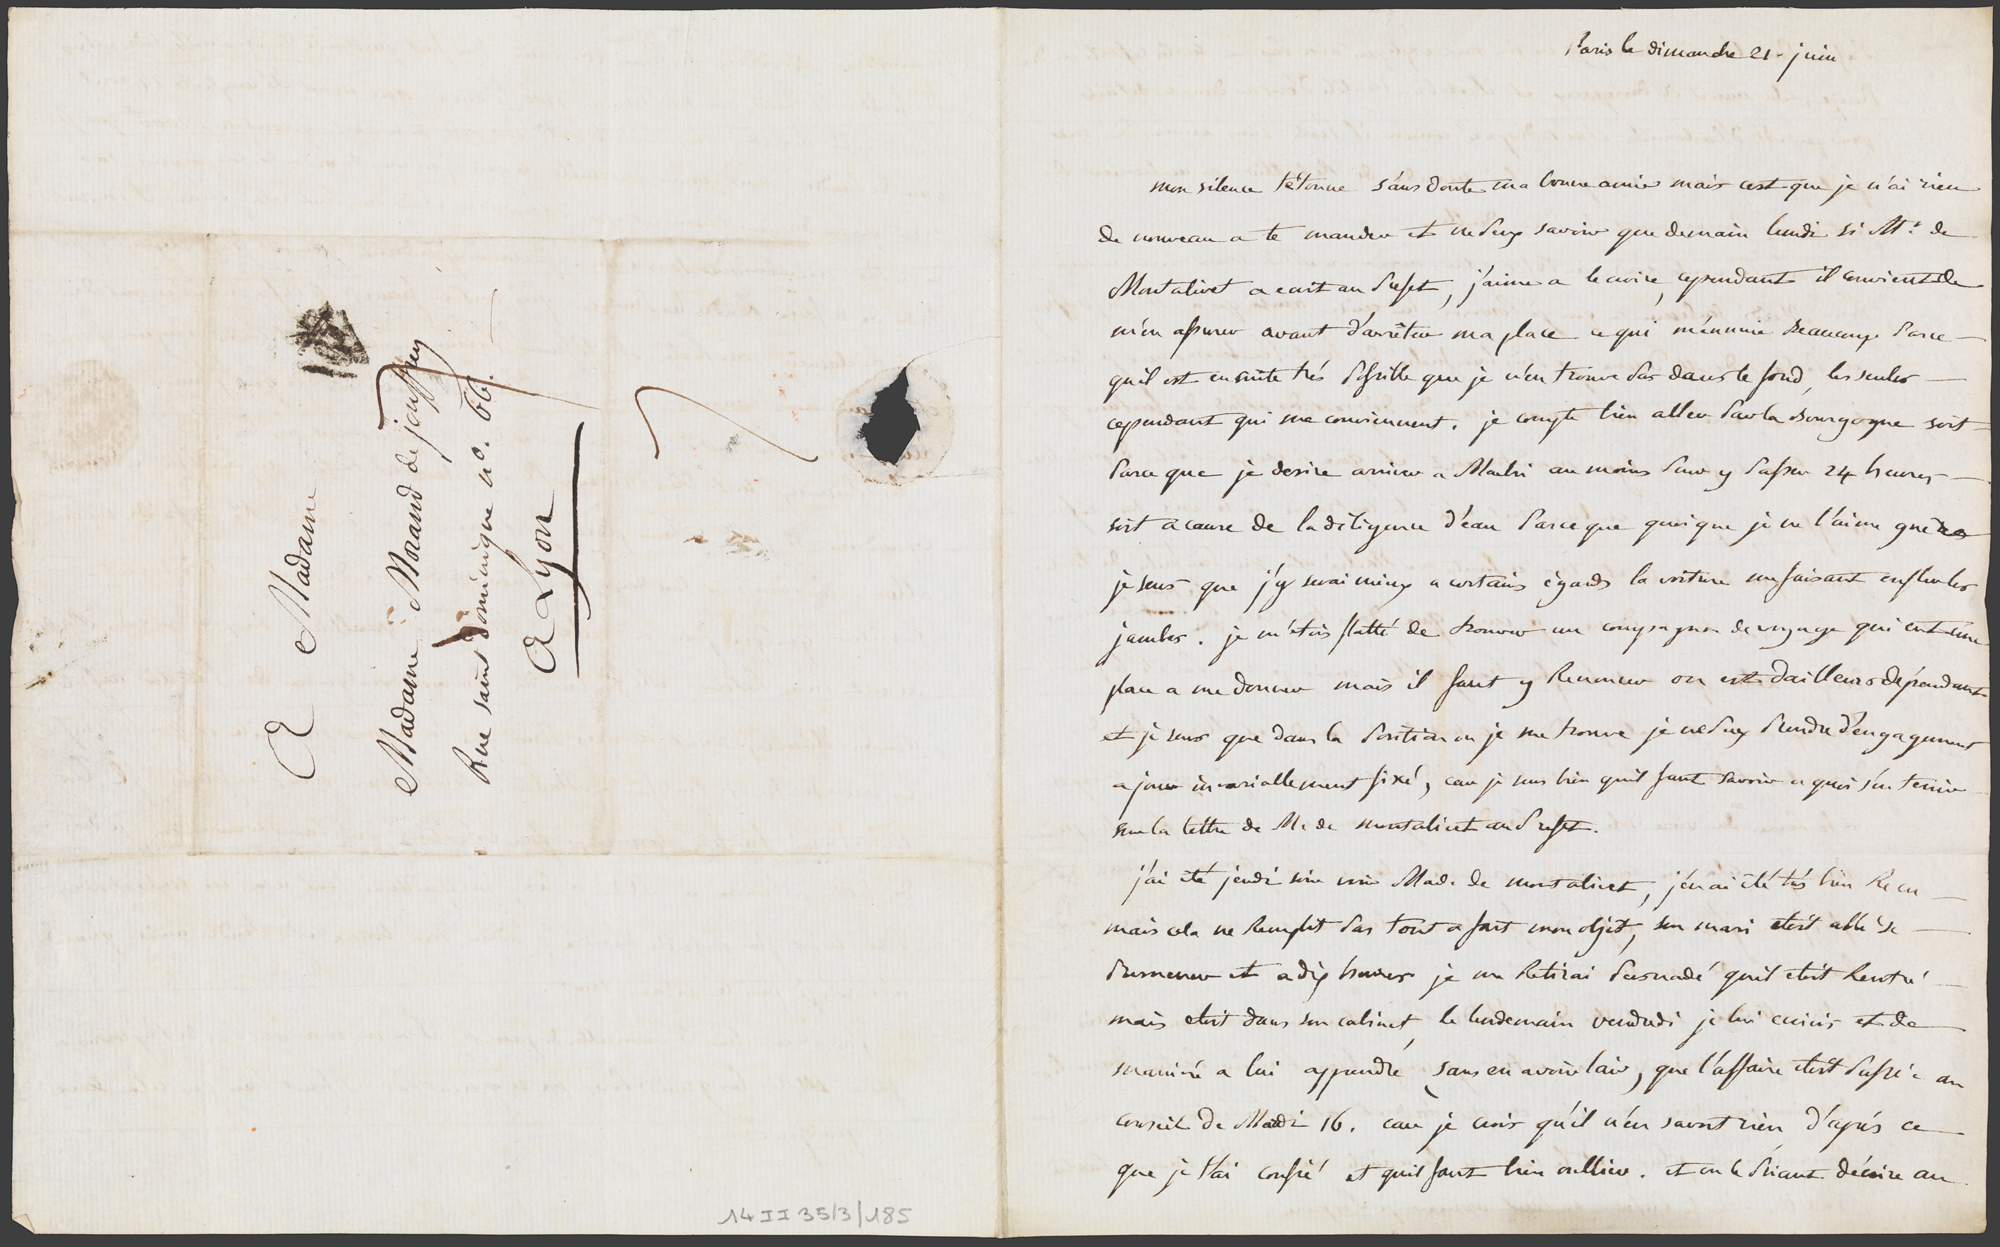 A Madame
Madame Morand de jouffrey
Rue saint dominique no. 66.
A Lyon
14 II 35/3/185
Paris le dimanche 21. juin
mon silence t'étonne sans doute ma bonne amie mais cest que je n'ai rien
de nouveau a te mander et ne peux savoir que demain lundi si Mr. de
Montalivet a ecrit au Prefet, j'aime a le croire, cependant il convient de
m'en assurer avant d'arrêter ma place ce qui m'ennuie beaucoup parce
quil est ensuite trés possible que je n'en trouve pas dans le fond, les seules
cependant qui me conviennent. je compte bien aller par la Bourgogne soit
parce que je desire arriver a Machi au moins pour y passer 24 heures
soit a cause de la diligence d'eau parceque quoique je ne l'aime guères
je sens que j'y serai mieux a certains égards la voiture me faisant enfler les
jambes. je m'etois flatté de trouver un compagnon de voyage qui eut une
place a me donner mais il faut y Renoncer on est d'ailleurs dépendant
et je sens que dans la position ou je me trouve je ne puis prendre d'engagement
a jour invariablement fixé, car je sens bien quil faut savoir a quoi s'en tenir
sur la lettre de M. de montalivet au Prefet.
j'ai été jeudi soir voir Made. de montalivet, j'en ai été très bien Recu
mais cela ne Remplit pas tout a fait mon objet, son mari etoit allé se
promener et a dix heures je me Retirai persuadé quil etoit Rentré
mais etoit dans son cabinet, le lendemain vendredi je lui ecrivis et de
maniere a lui apprendre, sans en avoir lair, que l'affaire etoit passée au
conseil de Mardi 16. car je crois qu'il n'en savoit rien d'aprés ce
que je t'ai confié et quil faut bien oublier. et en le priant décrire au